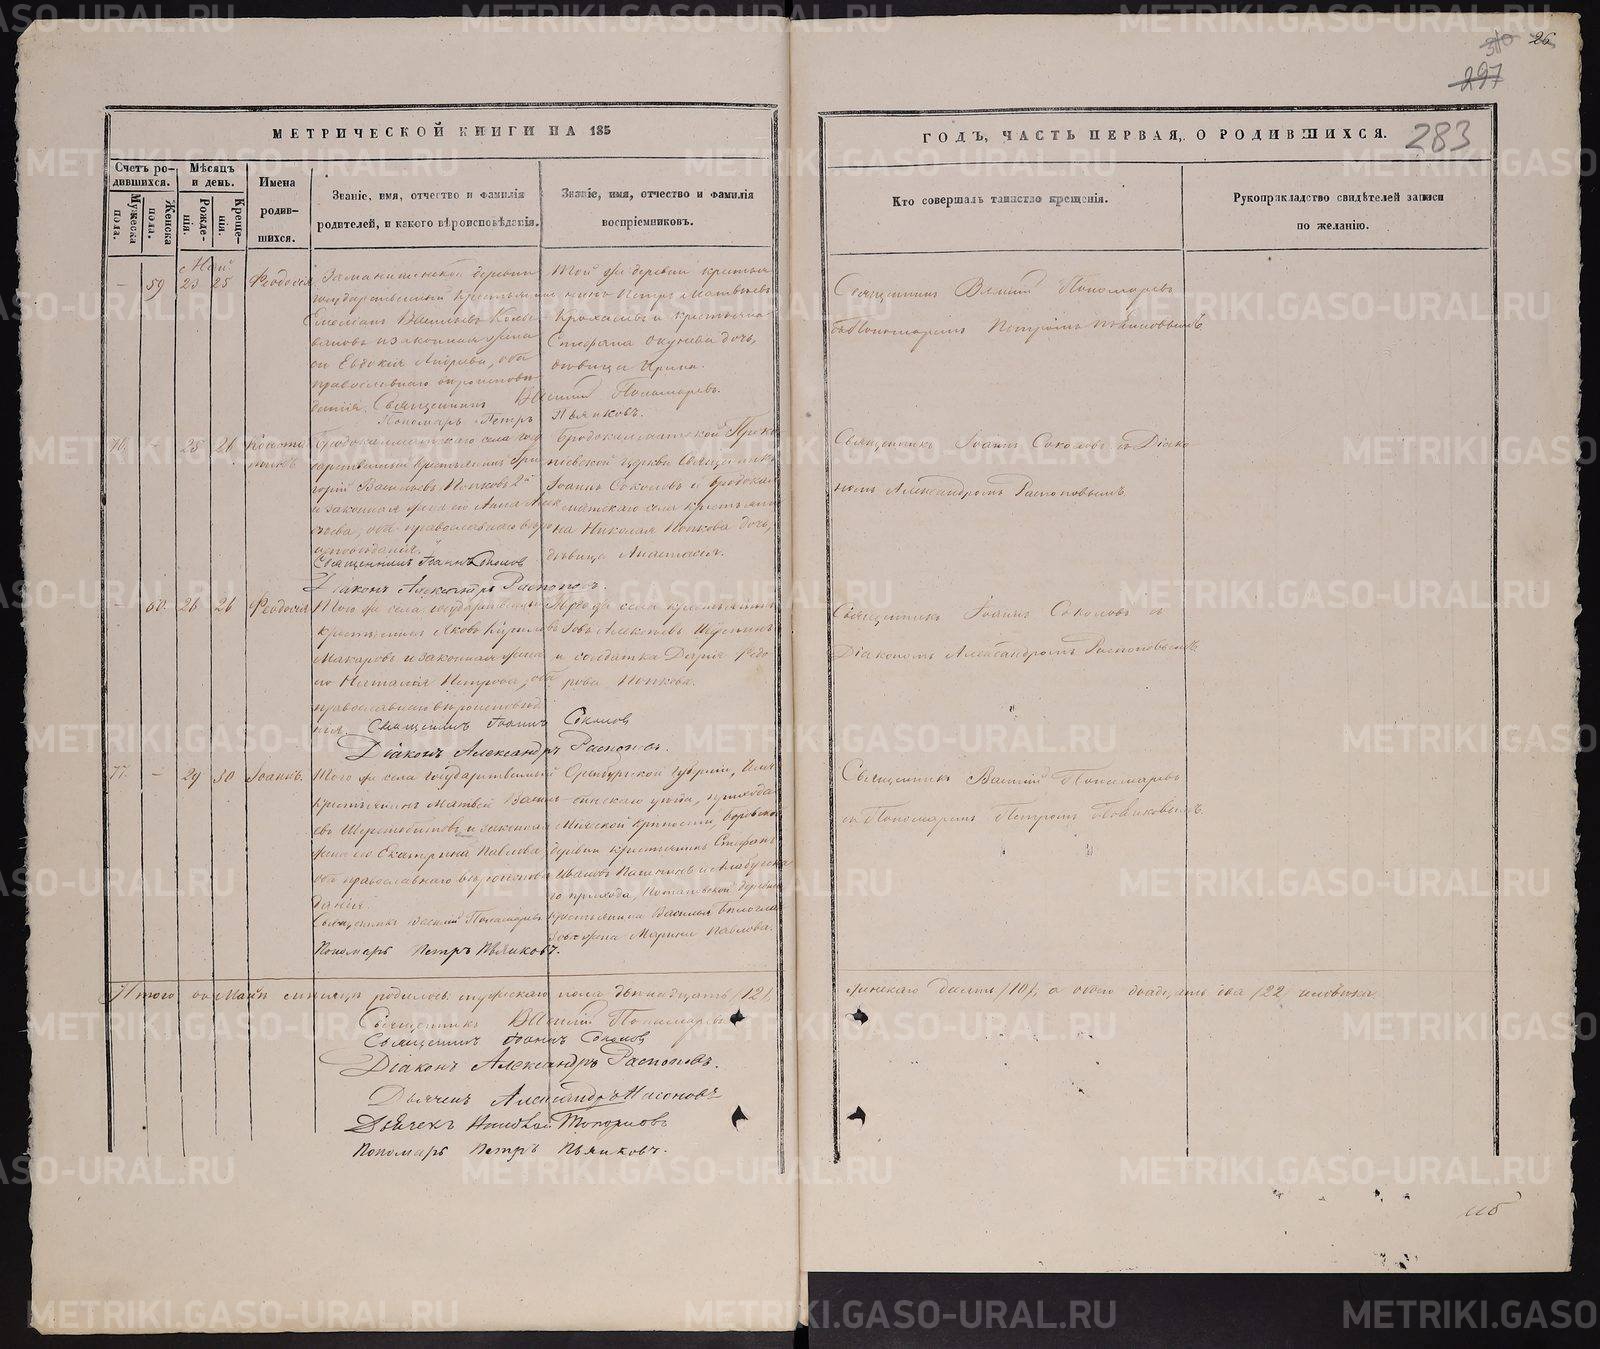 310 26
297
283
МЕТРИЧЕСКОЙ КНИГИ НА 185
ГОДЪ, ЧАСТЬ ПЕРВАЯ, О РОДИВШИХСЯ.
Счетъ ро-
дившихся.
Мѣсяцъ
и день.
Мужеска
пола.
Женска
пола.
Рожде-
нія.
Креще-
нія.
Имена
родив-
шихся.
Званіе, имя, отчество и фамилія
родителей, и какого вѣроисповѣданія.
Званіе, имя, отчество и фамилія
воспріемниковъ.
Кто совершалъ таинство крещенія.
Рукоприкладство свидѣтелей записи
по желанію.
Май
— 59 23 25 Феодосія
деревни
государственный крестьянинъ
Васильевъ
и законная жена
его Евдокія Андреева, оба
православнаго вѣроисповѣ-
данія. Священникъ Василій Пономаревъ.
Пономарь Петръ Пьянковъ.
Той же деревни крестья-
нинъ Петръ Матвѣевъ
и крестьянина
Стефана Окунева дочь,
дѣвица Ирина.
Священникъ Василій Пономаревъ
съ Пономаремъ Петромъ Пьянковымъ
76. — 25 26
Бродокалматскаго села госу-
дарственный крестьянинъ Гри-
горій Васильевъ Попковъ 2й
и законная жена его Анна Алек-
сѣева, оба православнаго вѣро-
исповѣданія.
Священникъ Іоаннъ Соколовъ
Діаконъ Александръ Распоповъ.
Бродокалматской Проко-
піевской церкви Священникъ
Іоаннъ Соколовъ и Бродокал-
матскаго села крестьяни-
на Николая Попкова дочь,
дѣвица Анастасія.
Священникъ Іоаннъ Соколовъ съ Діако-
номъ Александромъ Распоповымъ
— 60. 26 26 Феодосія
Того же села государственный
крестьянинъ Яковъ Кириловъ
Макаровъ и законная жена
его Наталія Петрова, оба
православнаго вѣроисповѣда-
нія. Священникъ Іоаннъ Соколовъ
Діаконъ Александръ Распоповъ.
Того же села крестьянинъ
Іовъ Алексѣевъ
и солдатка Дарія Ѳедо-
рова Попкова.
Священникъ Іоаннъ Соколовъ съ
Діакономъ Александромъ Распоповымъ
77. — 29 30 Іоаннъ.
Того же села государственный
крестьянинъ Матвей Василь-
евъ Шерстобитовъ и законная
жена его Екатерина Павлова,
оба православнаго вѣроисповѣ-
данія.
Священникъ Василій Пономаревъ
Пономарь Петръ Пьянковъ.
Оренбургской губерніи, Челя-
бинскаго уѣзда, прихода
Міяской крѣпости, Боровской
деревни крестьянинъ Стефанъ
Ивановъ
прихода, деревни
крестьянина Василья
жена Марина Павлова.
Священникъ Василій Пономаревъ
съ Пономаремъ Петромъ Пьянковымъ.
Итого въ Маѣ мѣсяцѣ родилось мужескаго пола двѣнадцать /12/,
женскаго десять /10/, а обоего двадцать два /22/ человѣка.
Священникъ Василій Пономаревъ
Священникъ Іоаннъ Соколовъ
Діаконъ Александръ Распоповъ.
Дьячекъ Александръ Насоновъ
Дьячекъ Николай Топорковъ
Пономарь Петръ Пьянковъ.
METRIKI.GASO-URAL.RU